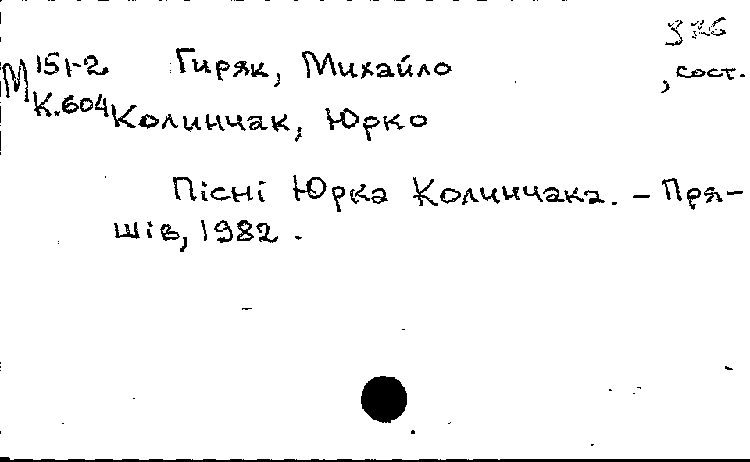 326
М 151-2 Гиряк, Михайло , сост.
К.604 Колинчак, Юрко
Пісні Юрка Колинчака. – Пря-
шів, 1982.